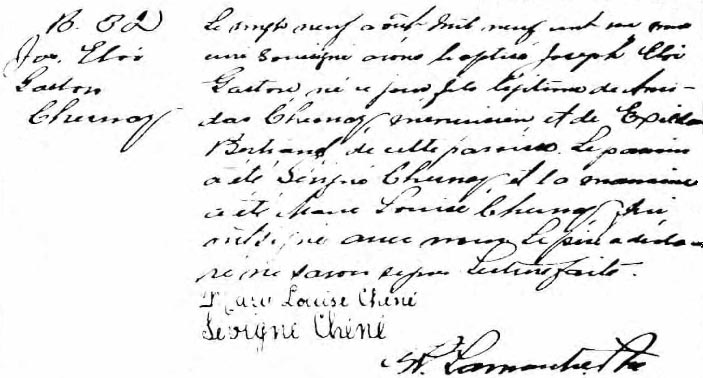 B. 52
Jos. Eloi
Gaston
Chesnay
Le vingt neuf août mil neuf cent nous
curé soussigné avons baptisé Joseph Eloi
Gaston, né ce jour, fils légitime de Ami-
das Chesnay menuisier et de Exilda
Bertrand de cette paroisse. Le parrain
a été Sévigné Chesnay et la marraine
a été Marie Louise Chesnay qui
ont signé avec nous. Le père a décla-
ré ne savoir signer. Lecture faite.
Marie Louise Chéné
Sévigné Chéné